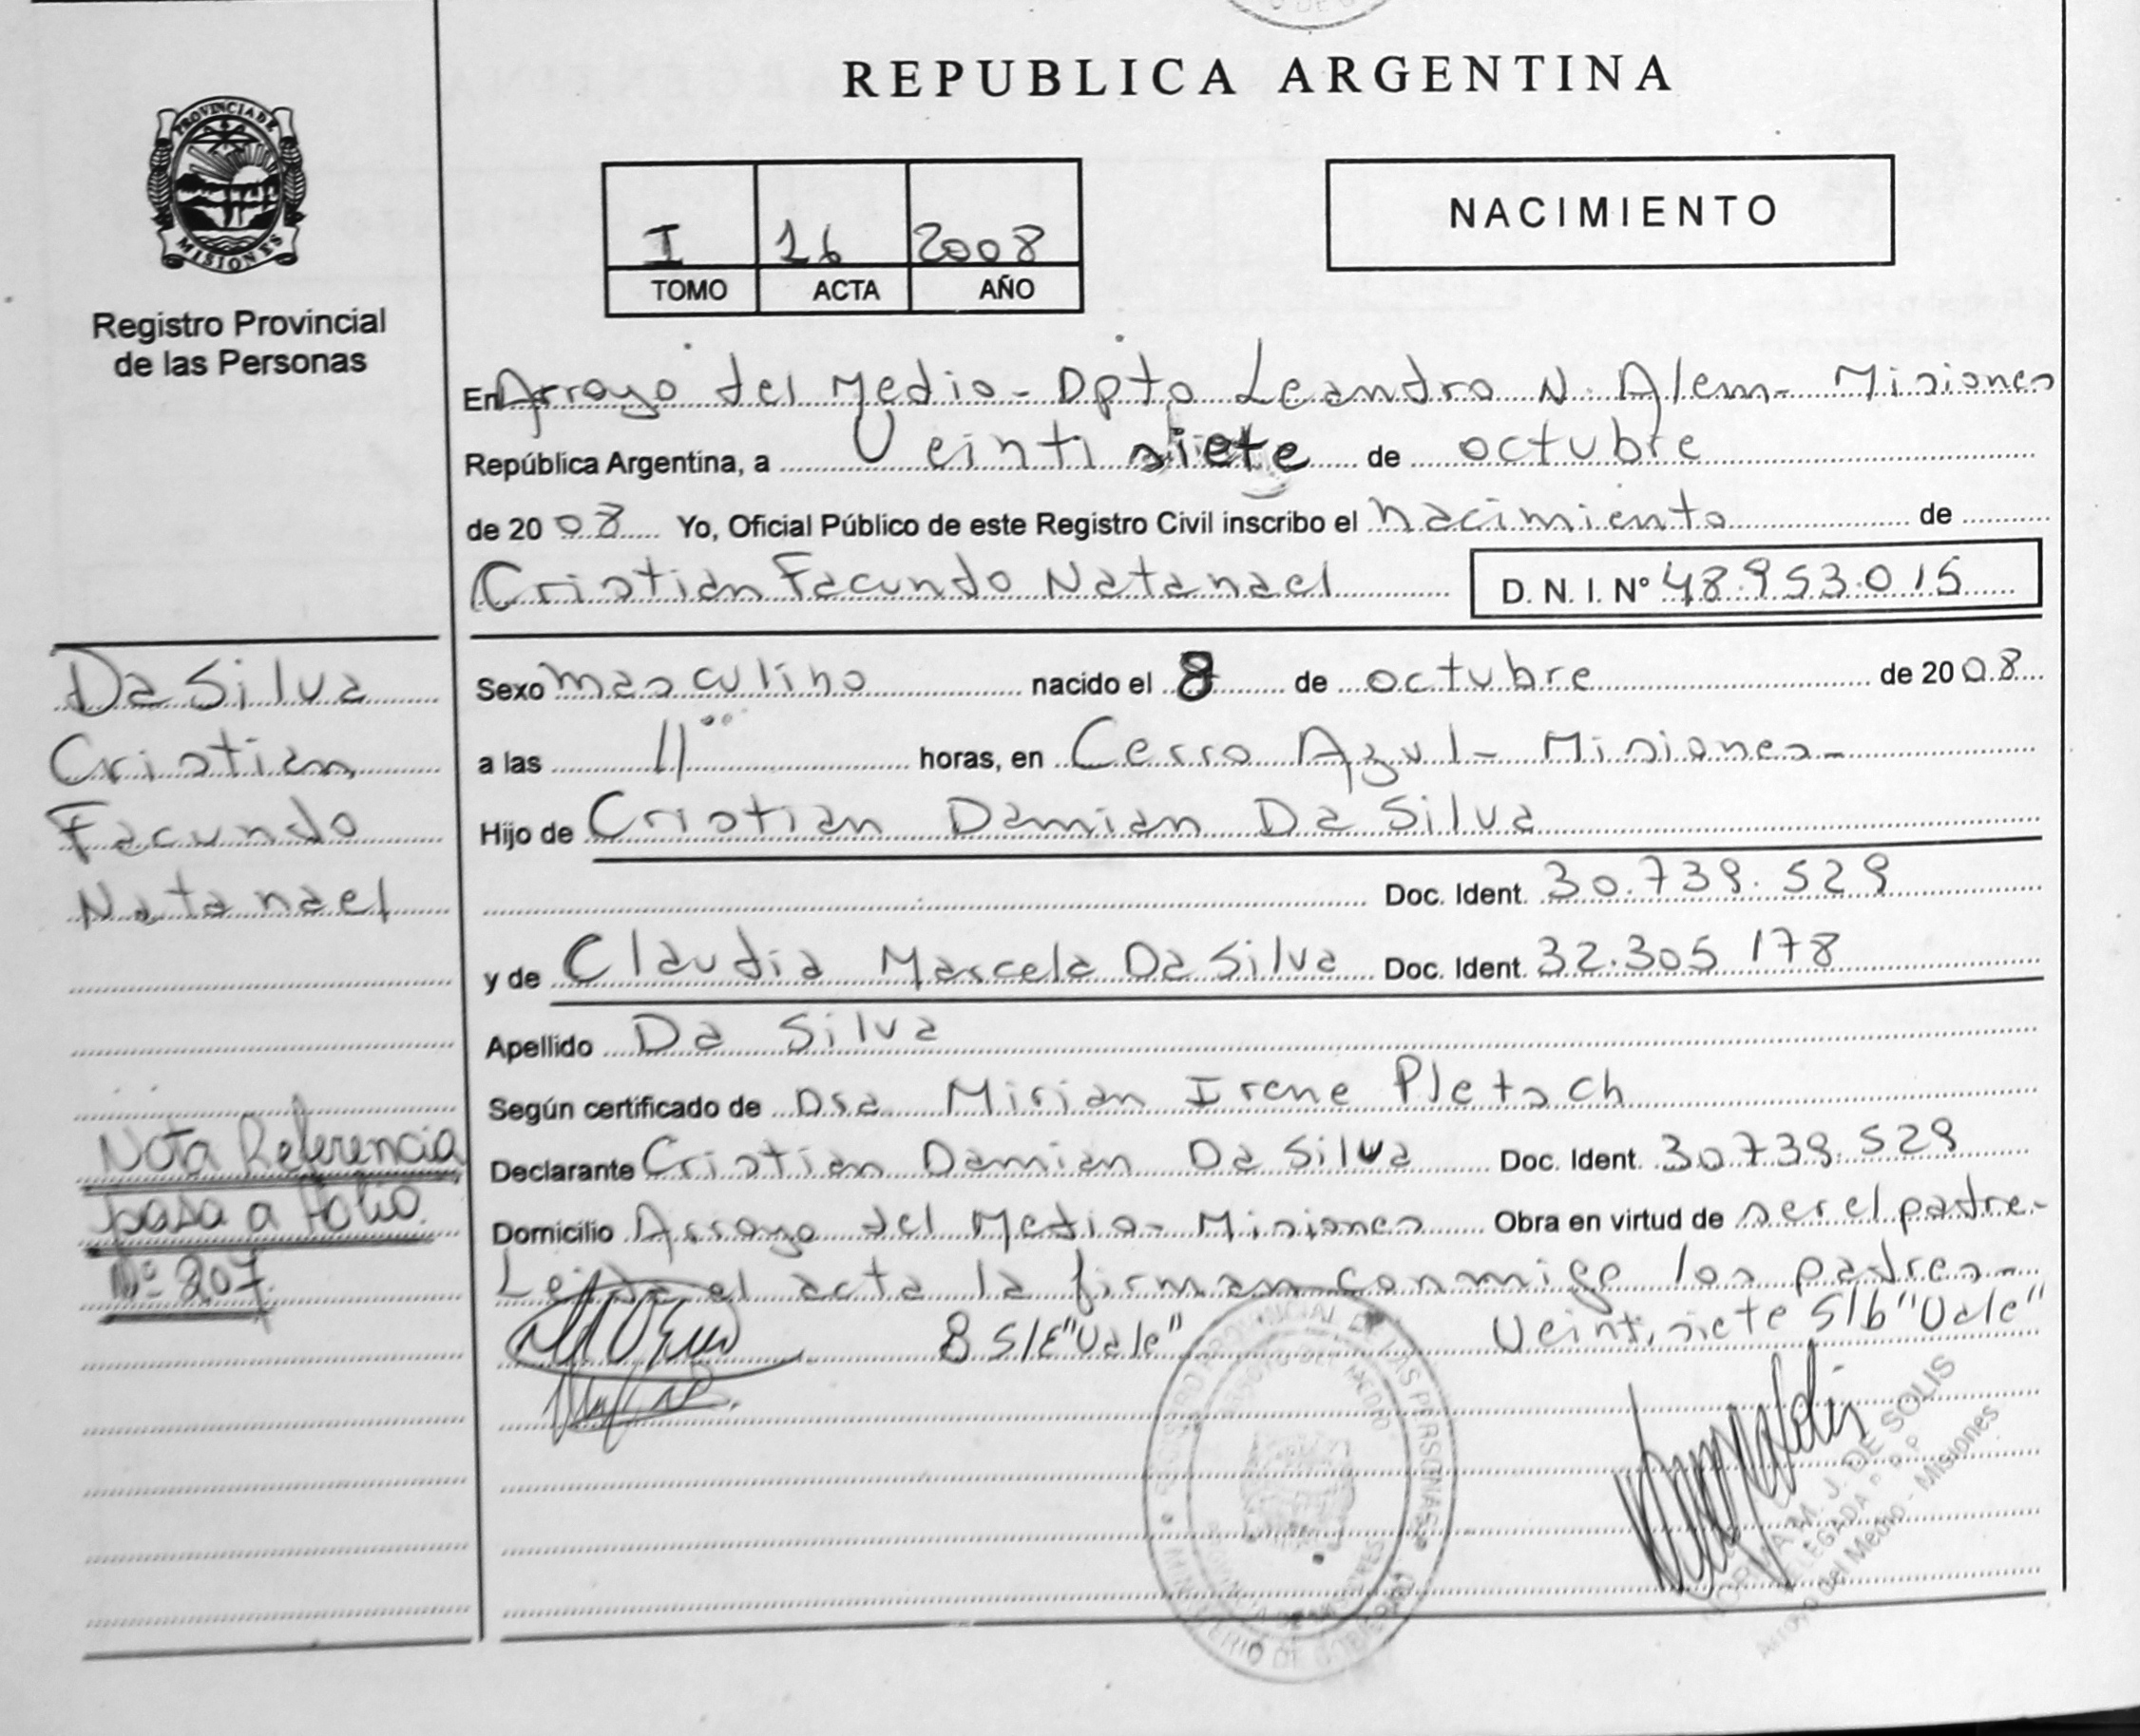 REPUBLICA ARGENTINA
PROVINCIA DE
MISIONES
Registro Provincial
de las Personas
I 16 2008
TOMO ACTA AÑO
NACIMIENTO
En Arroyo del Medio - Dpto Leandro N. Alem - Misiones
República Argentina, a Veintisiete de octubre
de 2008 Yo, Oficial Público de este Registro Civil inscribo el nacimiento de
Cristian Facundo Natanael D. N. I. Nº 48.953.015
Da Silva
Cristian
Facundo
Natanael
Sexo masculino nacido el 8 de octubre de 2008
a las 11 horas, en Cerro Azul - Misiones -
Hijo de Cristian Damian Da Silva
Doc. Ident. 30.739.529
y de Claudia Marcela Da Silva Doc. Ident. 32.305 178
Apellido Da Silva
Según certificado de Dra Mirian Irene Pletsch
Declarante Cristian Damian Da Silva Doc. Ident. 30739.529
Domicilio Arroyo del Medio - Misiones Obra en virtud de ser el padre -
Leida el acta la firman conmigo los padres -
8 S/E "Vale" Veintisiete S/b "Vale"
Nota Referencia
pasa a folio
Nº 207
REGISTRO PROVINCIAL DE LAS PERSONAS
ARROYO DEL MEDIO
PROVINCIA DE MISIONES
MINISTERIO DE GOBIERNO
NORMA M. J. DE SOLIS
DELEGADA
Arroyo del Medio - Misiones